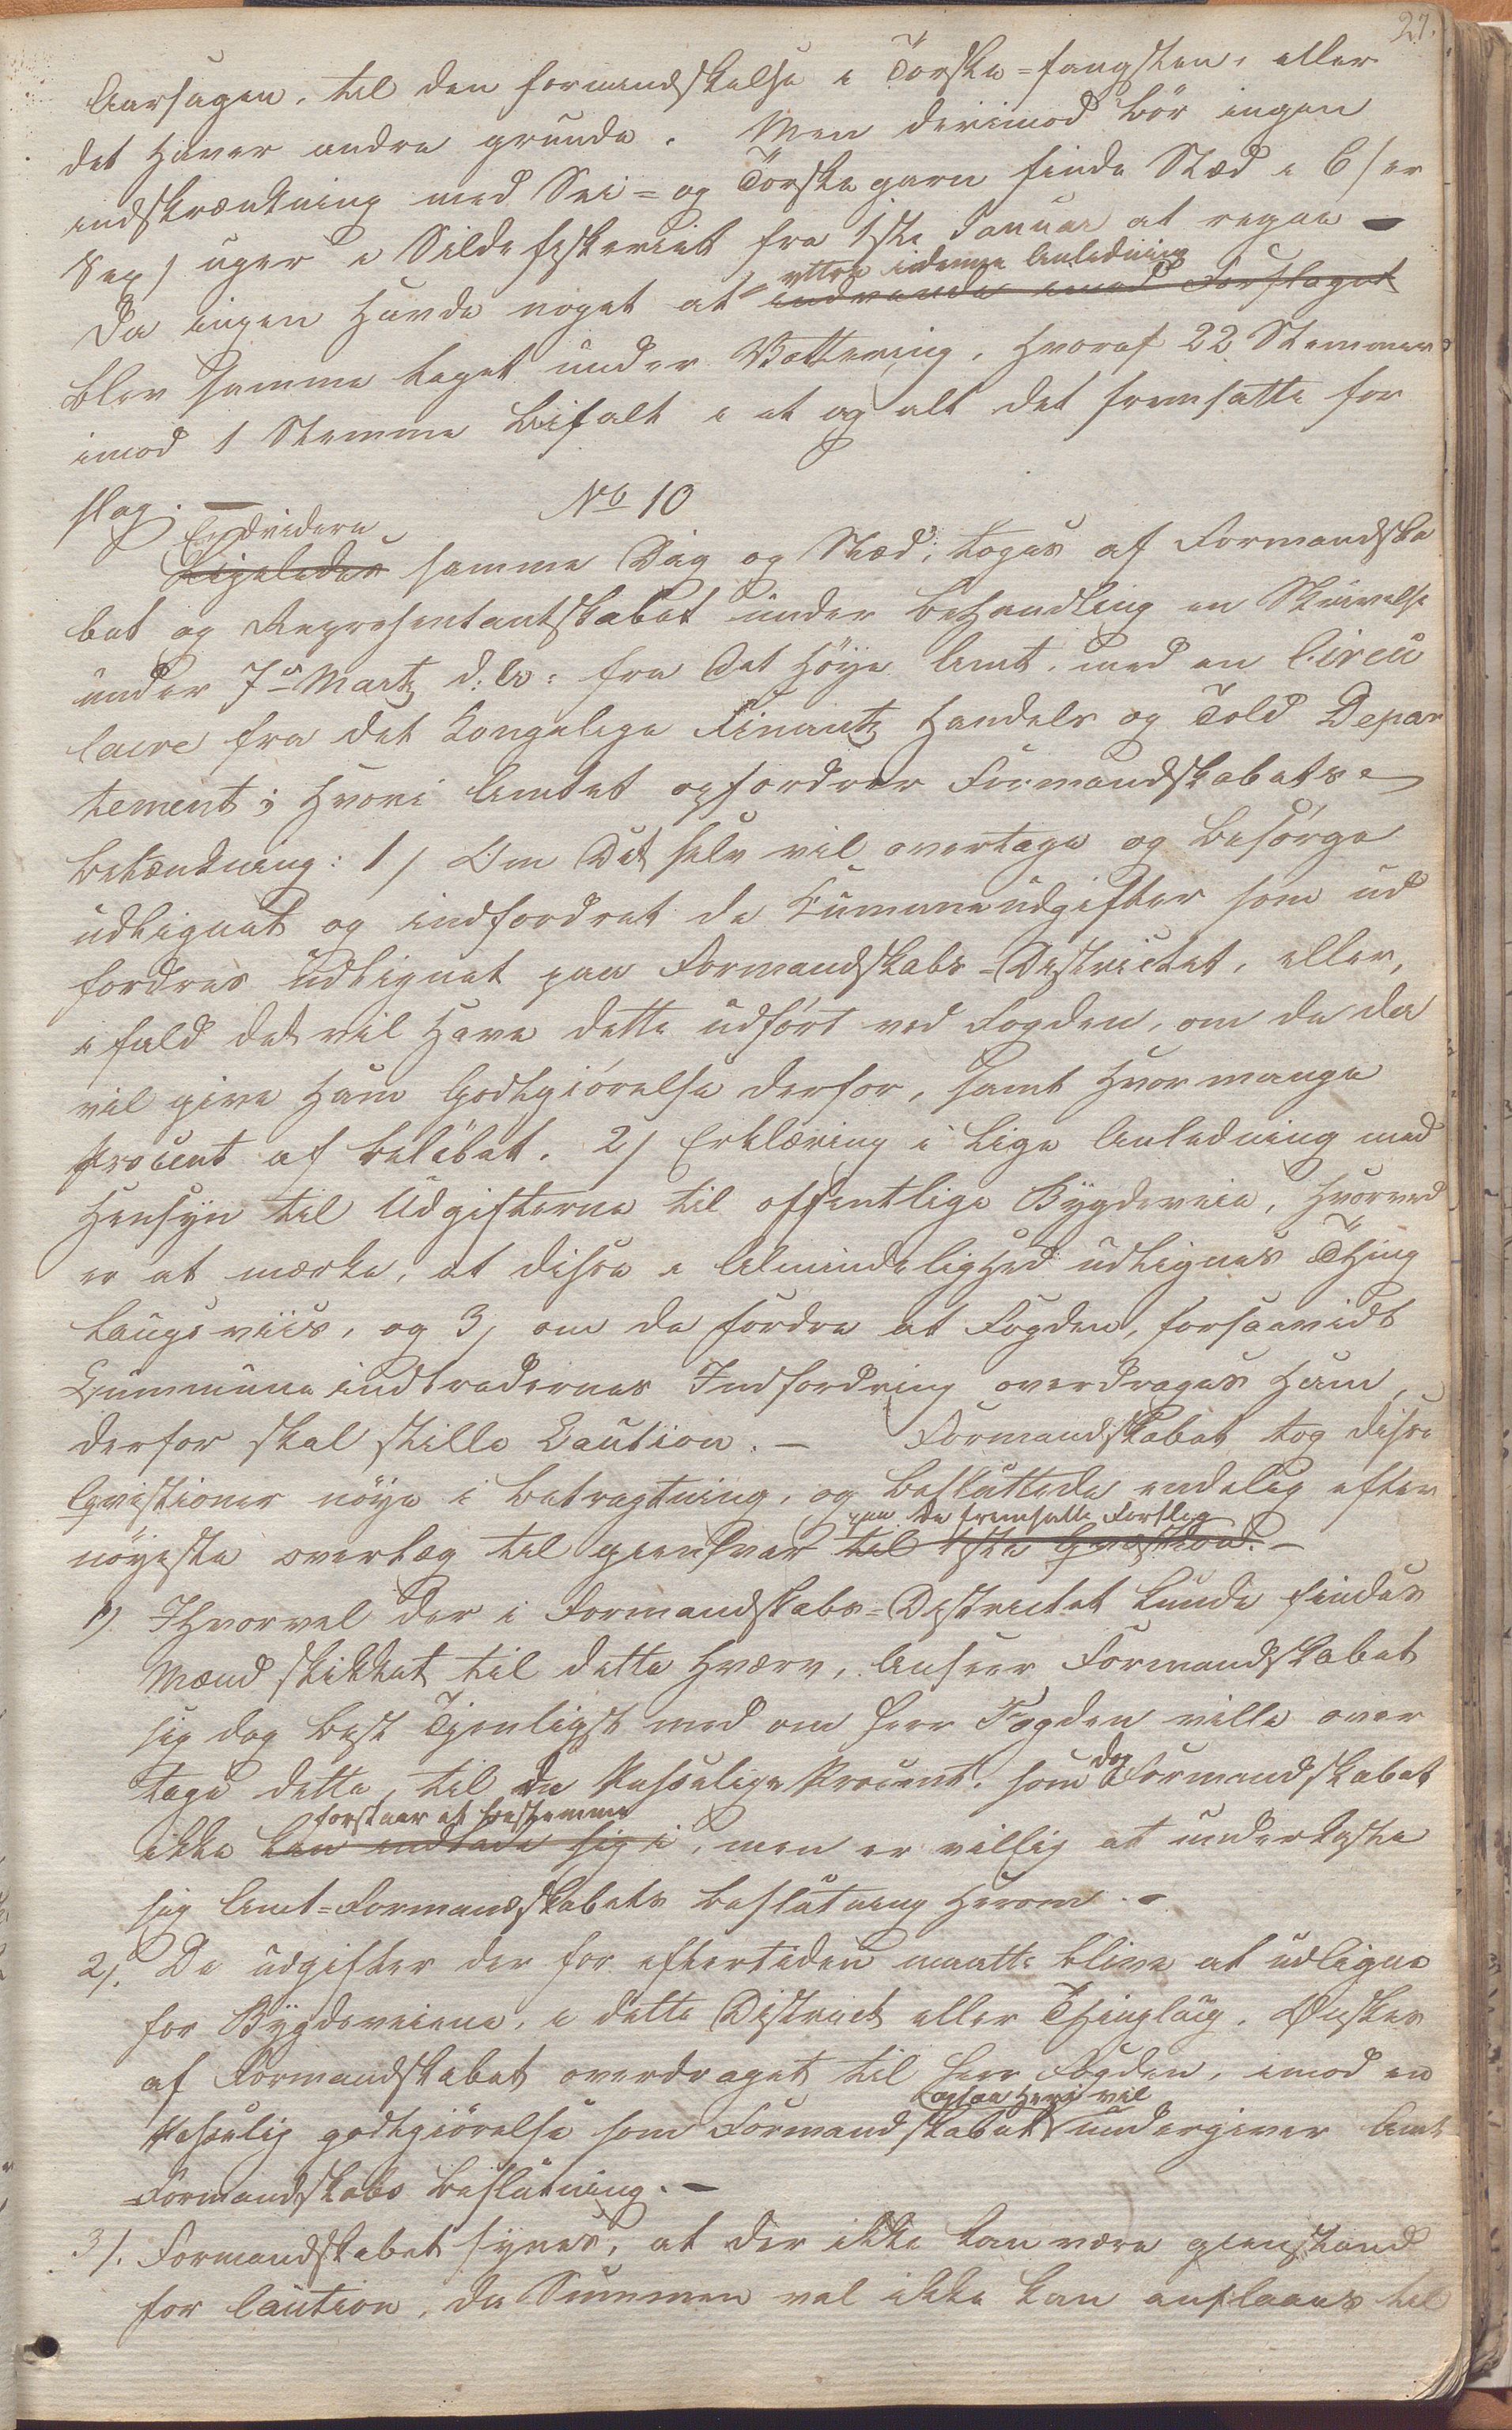 27.
Aarsagen, til den formindskelse i Törske-fangsten, eller
det haver andre grunde. Men derimod bör ingen
indskrænkning med Sei- og Törskegarn finde Stæd i 6/er
Sex/ uger i Sildefiskeriet fra 1ste Januar at regne –
yttre idenne Anledning
Da ingen havde noget at indvende imod Forslaget
blev samme taget under Vottering, hvoraf 22 Stemmer
imod 1 Stemme bifalt i et og alt det fremsatte for
slag. – No 10
Endvidere
Ligeledes samme Dag og Stæd, toges af Formandska
bet og Repræsentantskabet under behandling en Skrivelse
under 7de Martz d: A: fra Det höye Amt, med en Circu
laire fra det Kongelige Finantz Handels og Told Depar
tement; hvori Amtet opfordrer Formandskabets
betænkning: 1/ Om Det selv vil overtage og besörge
udlignet og indfordret de Kummuneudgifter som ud
fordres udlignet paa Formandskabs-Districtet, eller,
i fald det vil have dette udfört ved Fogden, om de da
vil give ham Godtgiörelse derfor, samt hvormange
procent af belöbet. 2/ Erklæring i lige Anledning med
Hensyn til Udgifterne til offentlige Bÿgdeveie, hvorved
er at mærke, at disse i Almindelighed udlignes Thing
laugsviis, og 3, om de fordre at Fogden, forsaavidt
Kummune indtrædernes Indfordring overdrages ham,
derfor skal stille Caution. – Formandskabet tog disse
Qvistioner nöye i betragtning, og besluttede endelig efter
paa de fremsatte Forslag
nöyeste overlæg til giensvar til 1ste Qvæstion. –
1) Ihvorvel der i Formandskabs-Districtet kunde findes
Mænd skikket til dette hværv, Anseer Formandskabet
sig dog best Tjenligst med om Herr Fogden ville over
dog
tage dette, til de passelige Procent, som Formandskabet
forstaar at bestemme
ikke kan indlade sig i, men er villig at underkaste
sig Amt-Formandskabets beslutning herom. –
2/. De udgifter der for eftertiden maatte blive at udligne
for Bÿgdeveiene, i dette District eller Thinglaug, Ønskes
af Formandskabet overdraget til Herr Fogden, imod en
ogsaa heri vil
Passelig godtgiörelse som Formandskabet undergiver Amt
-Formandskabs beslutning. –
3/. Formandskabet synes, at der ikke kan være gienstand
for Caution, da Summen vel ikke kan anslaaes til